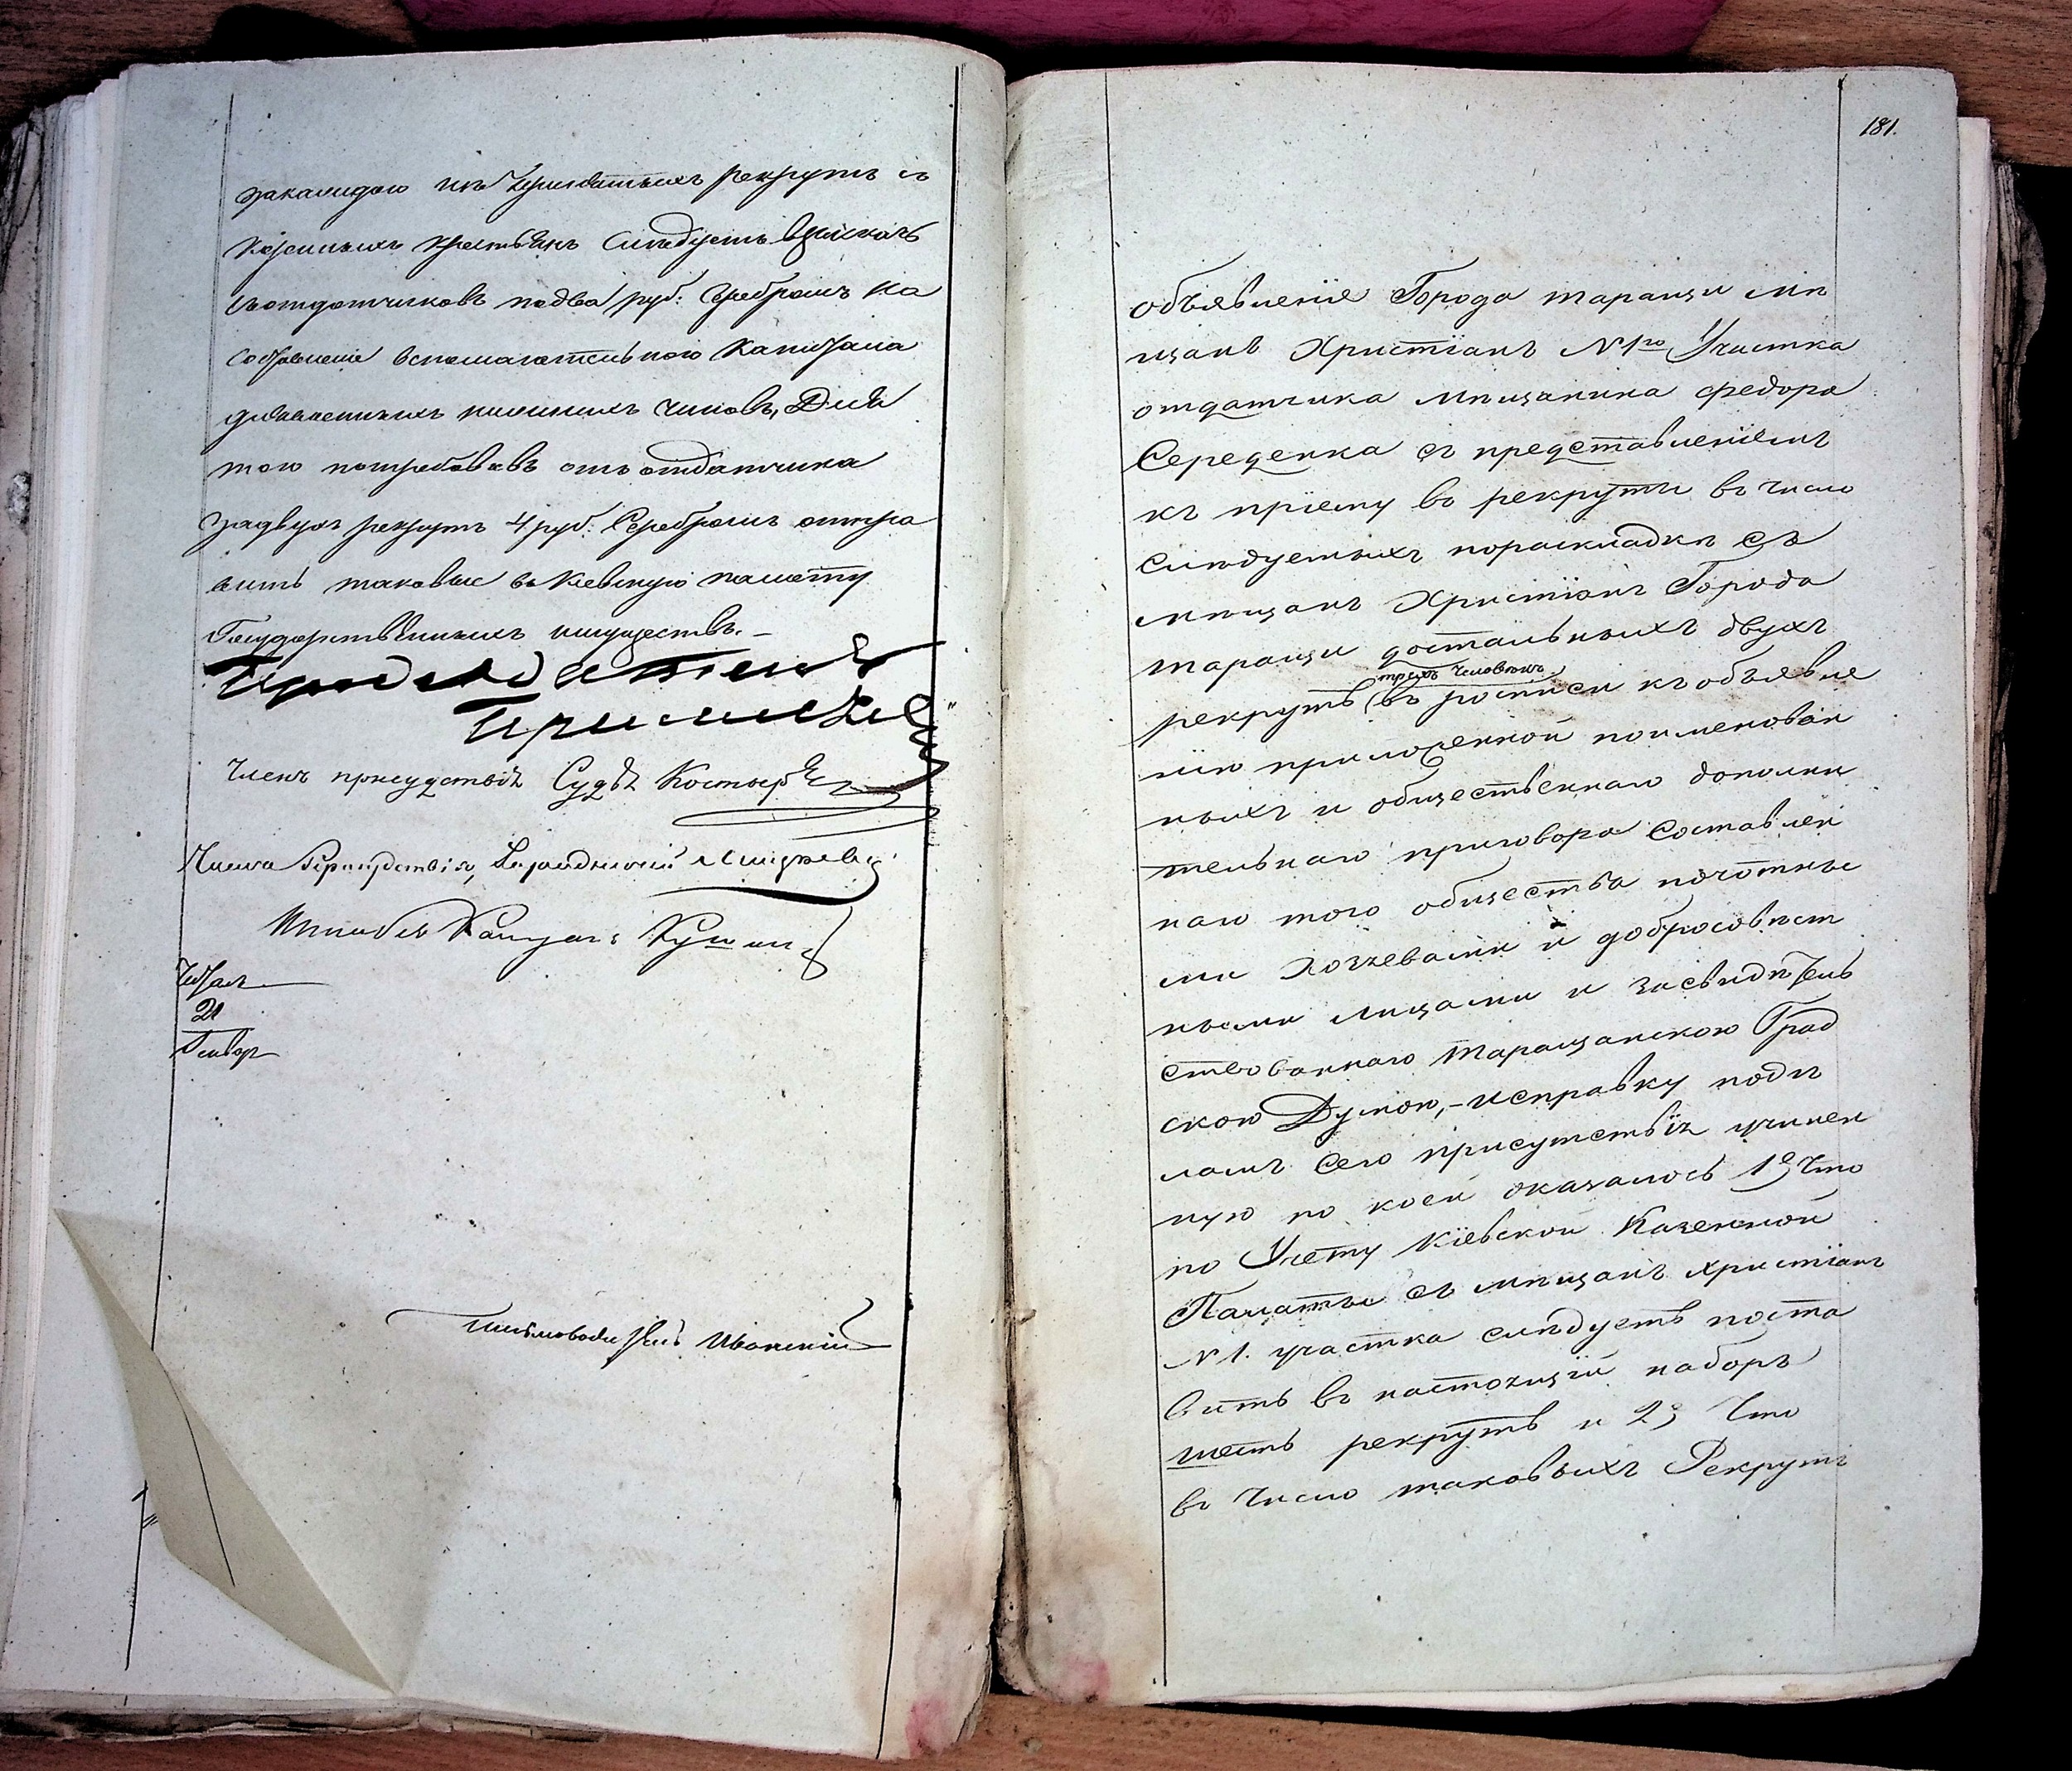 за каждого изъ принятыхъ рекрутъ съ
казенныхъ крестьянъ слѣдуетъ взыскать
съ отдатчиковъ по два руб: серебромъ на
составленіе вспомагательного капитала
для нижнихъ чиновъ, Для
того потребовавъ отъ отдатчика
за двухъ рекрутъ 4 руб: Серебромъ отпра
вить таковые въ Кіевскую палату
Государственныхъ имуществъ. —
Членъ присудствія Судья
Члена Присудствія,
Читалъ
21
Письмоводитель Ивонскій
181.
объявленіе Города таращи мѣ
щанъ Христіанъ N 1го Участка
отдатчика мѣщанина федора
Середенка съ представленіемъ
къ пріему въ рекруты въ число
слѣдуемыхъ пораскладкѣ съ
мѣщанъ Христіанъ Города
таращи достальныхъ двухъ
трехъ человѣкъ
рекрутъ въ росписи къ объявле
нію приложенной поименован
ныхъ и общественнаго дополни
тельнаго приговора составлен
наго того общества почотны
ми хозяевами и добросовѣст
ными лицами и засвидѣтель
ствованнаго таращанскою Град
скою Думою, – исправку подѣ
ламъ сего присутствія учинен
ную по коей оказалось 1е, Что
по Учету Кіевской Казенной
Палаты съ мѣщанъ христіанъ
N 1. участка слѣдуетъ поста
вить въ настоящій наборъ
шесть рекрутъ и 2е, Что
въ число таковыхъ Рекрутъ